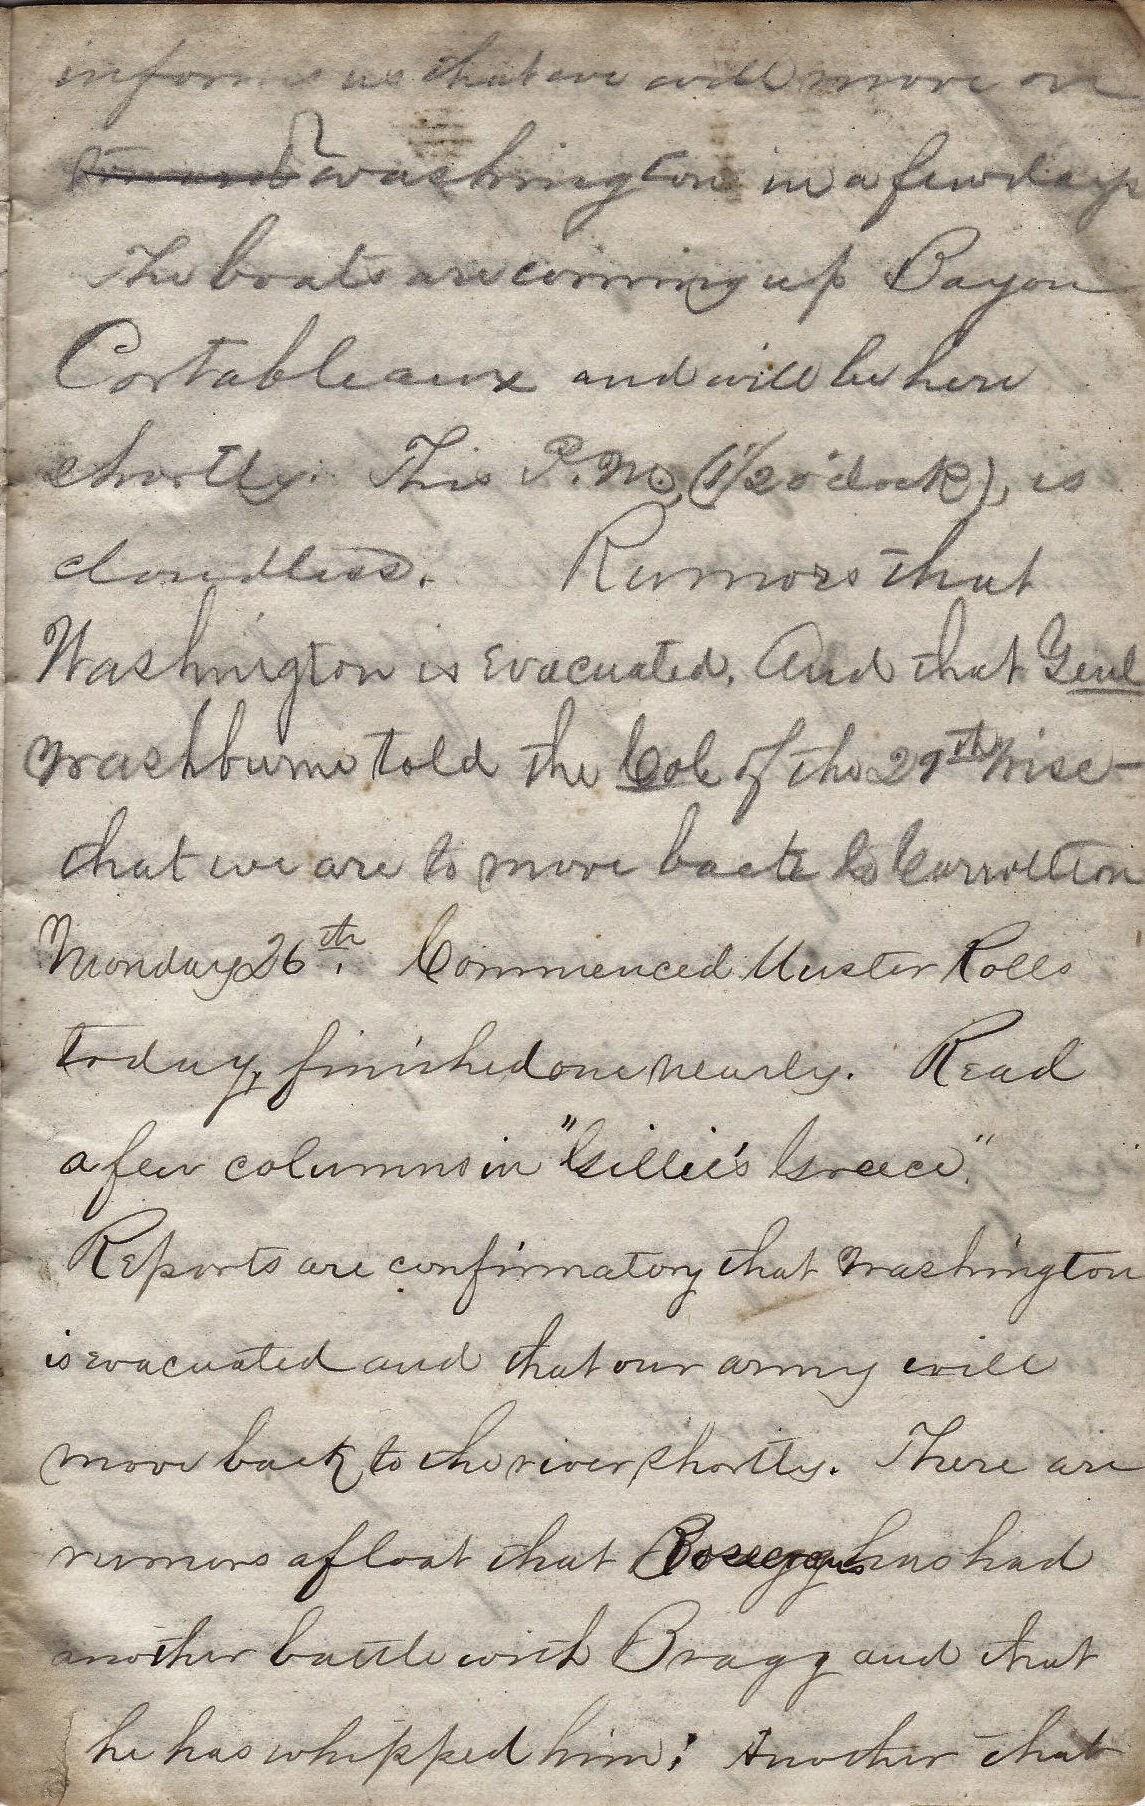 informs us that we will move on
toward washington in a few days
The boats are coming up Bayou
Cortableaux and will be here
shortly. This P.M. (1 1/2 o'clock), is
cloudless. Rumors that
Washington is Evacuated. And that Genl
Washburne told the Col of the 29th Wisc-
that we are to move back to Carrollton
Monday 26th. Commenced Muster Rolls
today, finished one nearly. Read
a few columns in "Gillie's Greece"
Reports are confirmatory that Washington
is evacuated and that our army will
move back to the river shortly. There are
rumors afloat that has had
another battle with Bragg and that
he has whipped him; Another that